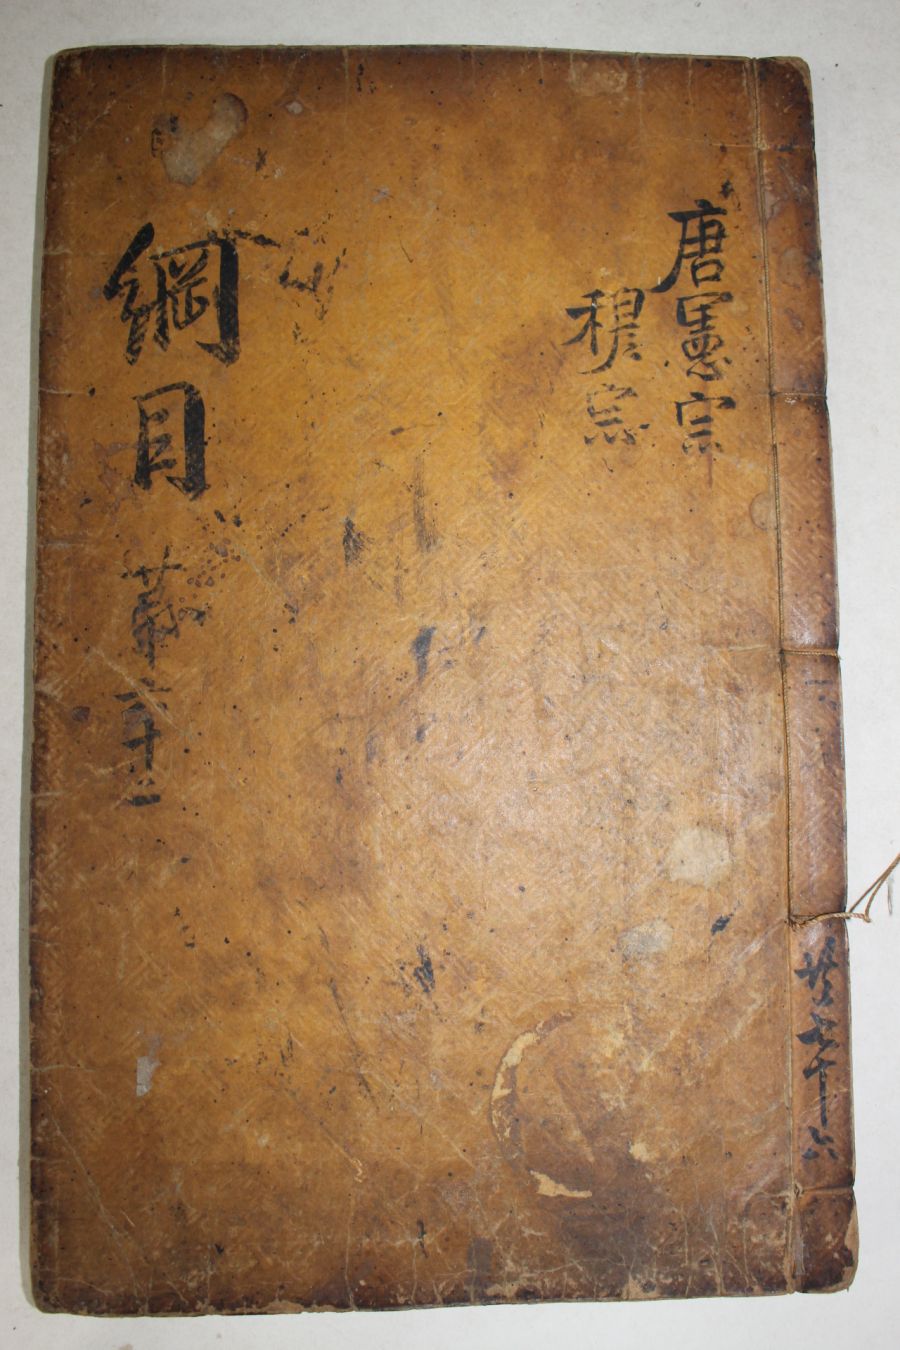 唐憲宗
穆宗
綱目
苐六十二
共七十六